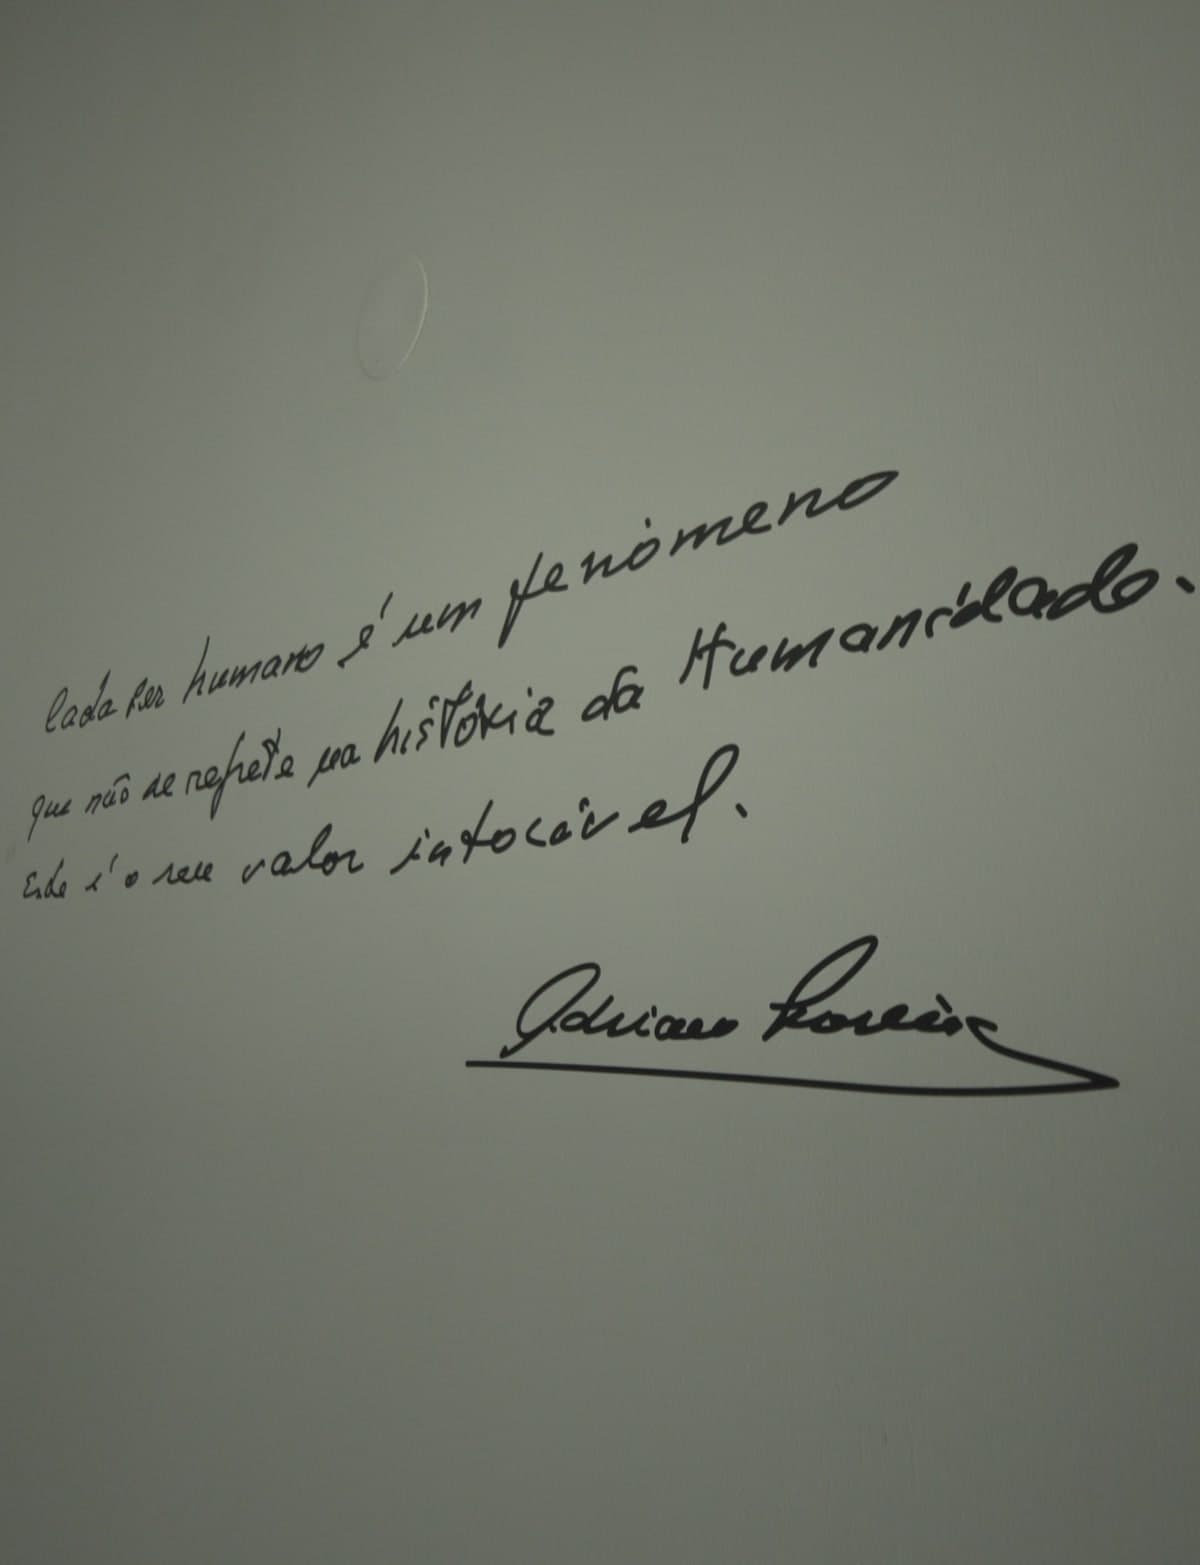 Cada ser humano é um fenómeno
que não se repete na história da Humanidade.
Este é o seu valor intocável.
Adriano Moreira